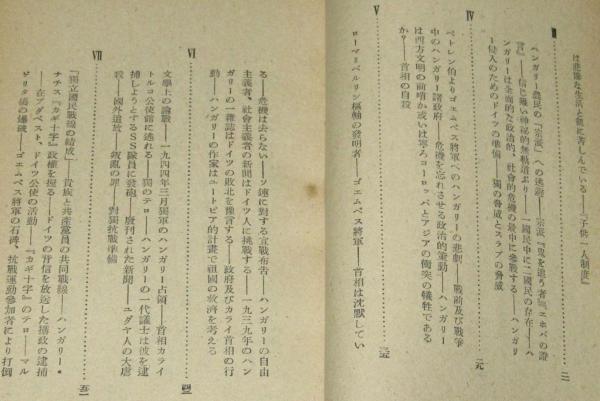 は悲慘な生活と飢に苦しんでいる――『子供一人制度』
Ⅲ
ハンガリー農民の「宗派」への逃避――宗派『鬼を追う者』『エホバの證
言』――信じ難い神祕的無軌道より――一國民中に二國民の存在――ハ
ンガリーは全面的な政治的、社會的危機の最中に參戰する――ハンガリ
ー侵入のためのドイツの準備――獨の脅威とスラブの脅威
Ⅳ
ベトレン伯よりゴェムベス將軍へのハンガリーの悲劇――戰前及び戰爭
中のハンガリー諸政府――危機を忘れさせる政治的策動――ハンガリー
は西方文明の前哨か或いは寧ろヨーロッパとアジアの衝突の犠牲である
か？――首相の自殺
Ⅴ
ローマ＝ベルリン樞軸の發明者――ゴェムベス將軍――首相は沈默してい
る――危機は去らない――ソ連に對する宣戰布告――ハンガリーの自由
主義者、社會主義者の新聞はドイツ人に挑戰する――一九三九年のハン
ガリーの一雜誌はドイツの敗北を豫言する――政府及びカライ首相の行
動――ハンガリーの作家はユートピア的計畫で祖國の救濟を考える
Ⅵ
文學上の論戰――一九四四年三月獨軍のハンガリー占領――首相カライ
トルコ公使館に逃れる――獨のテロ――ハンガリーの一代議士は彼を逮
捕しようとするSS隊員に發砲――廢刊された新聞――ユダヤ人の大虐
殺――國外追放――叛亂の罪――對獨抗戰準備
Ⅶ
「獨立國民戰線の結成」――貴族と共産黨員の共同戰線――ハンガリー・
ナチス『カギ十字』政權を握る――ドイツの背信を放送した攝政の逮捕
――在ブダペスト、ドイツ公使の活動――『カギ十字』のテロ――マル
ゲリタ橋の爆破――ゴェムベス將軍の石碑、抗戰運動參加者により打倒